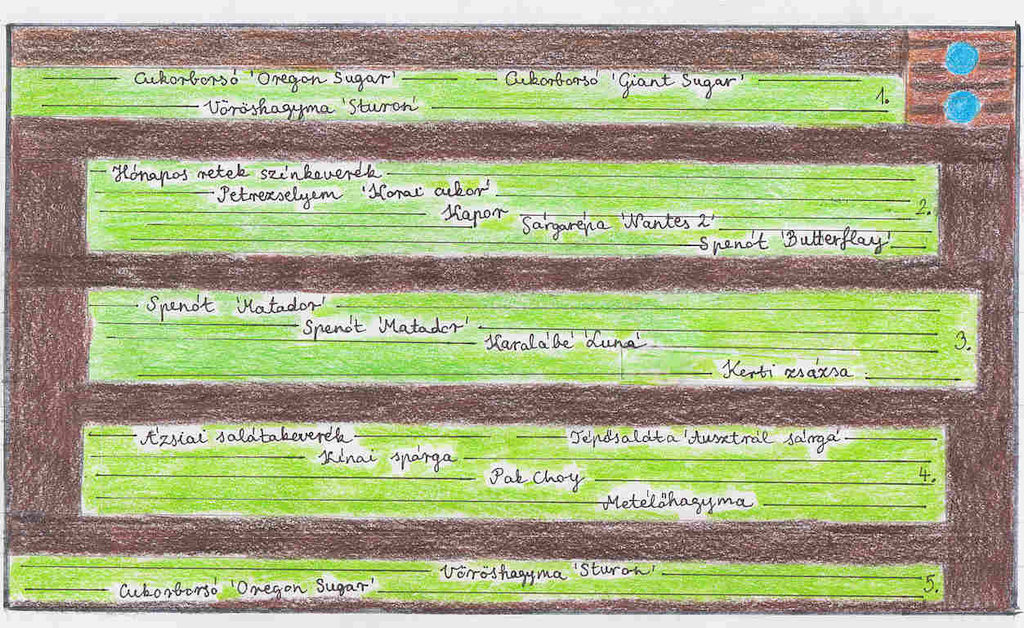 Cukorborsó 'Oregon Sugar' Cukorborsó 'Giant Sugar'
Vöröshagyma 'Sturon' 1.
Hónapos retek színkeverék
Petrezselyem 'Korai cukor' 2.
Kapor Sárgarépa 'Nantes 2'
Spenót 'Butterflay'
Spenót 'Matador'
Spenót 'Matador'
Karalábé 'Luna' 3.
Kerti zsázsa
Ázsiai salátakeverék Tépősaláta 'Ausztrál sárga'
Kínai spárga
Pak Choy 4.
Metélőhagyma
Vöröshagyma 'Sturon'
Cukorborsó 'Oregon Sugar' 5.